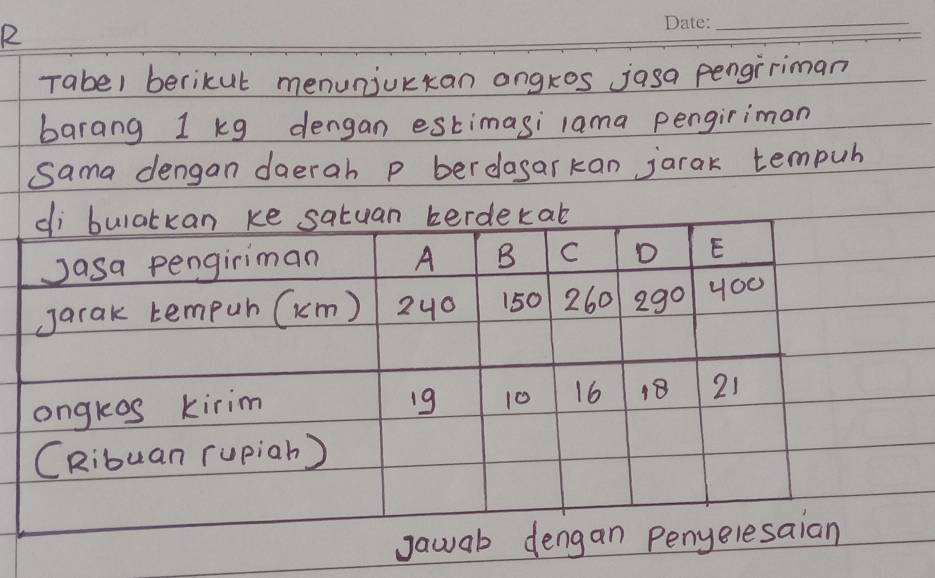 R
Date:
Tabel berikut menunjukkan ongkos jasa pengiriman
barang 1 kg dengan estimasi lama pengiriman
sama dengan daerah P berdasarkan jarak tempuh
di bulatkan ke satuan terdekat
Jasa pengiriman A B C D E
Jarak tempuh (km) 240 150 260 290 400
ongkos kirim 19 10 16 18 21
(Ribuan rupiah)
Jawab dengan Penyelesaian